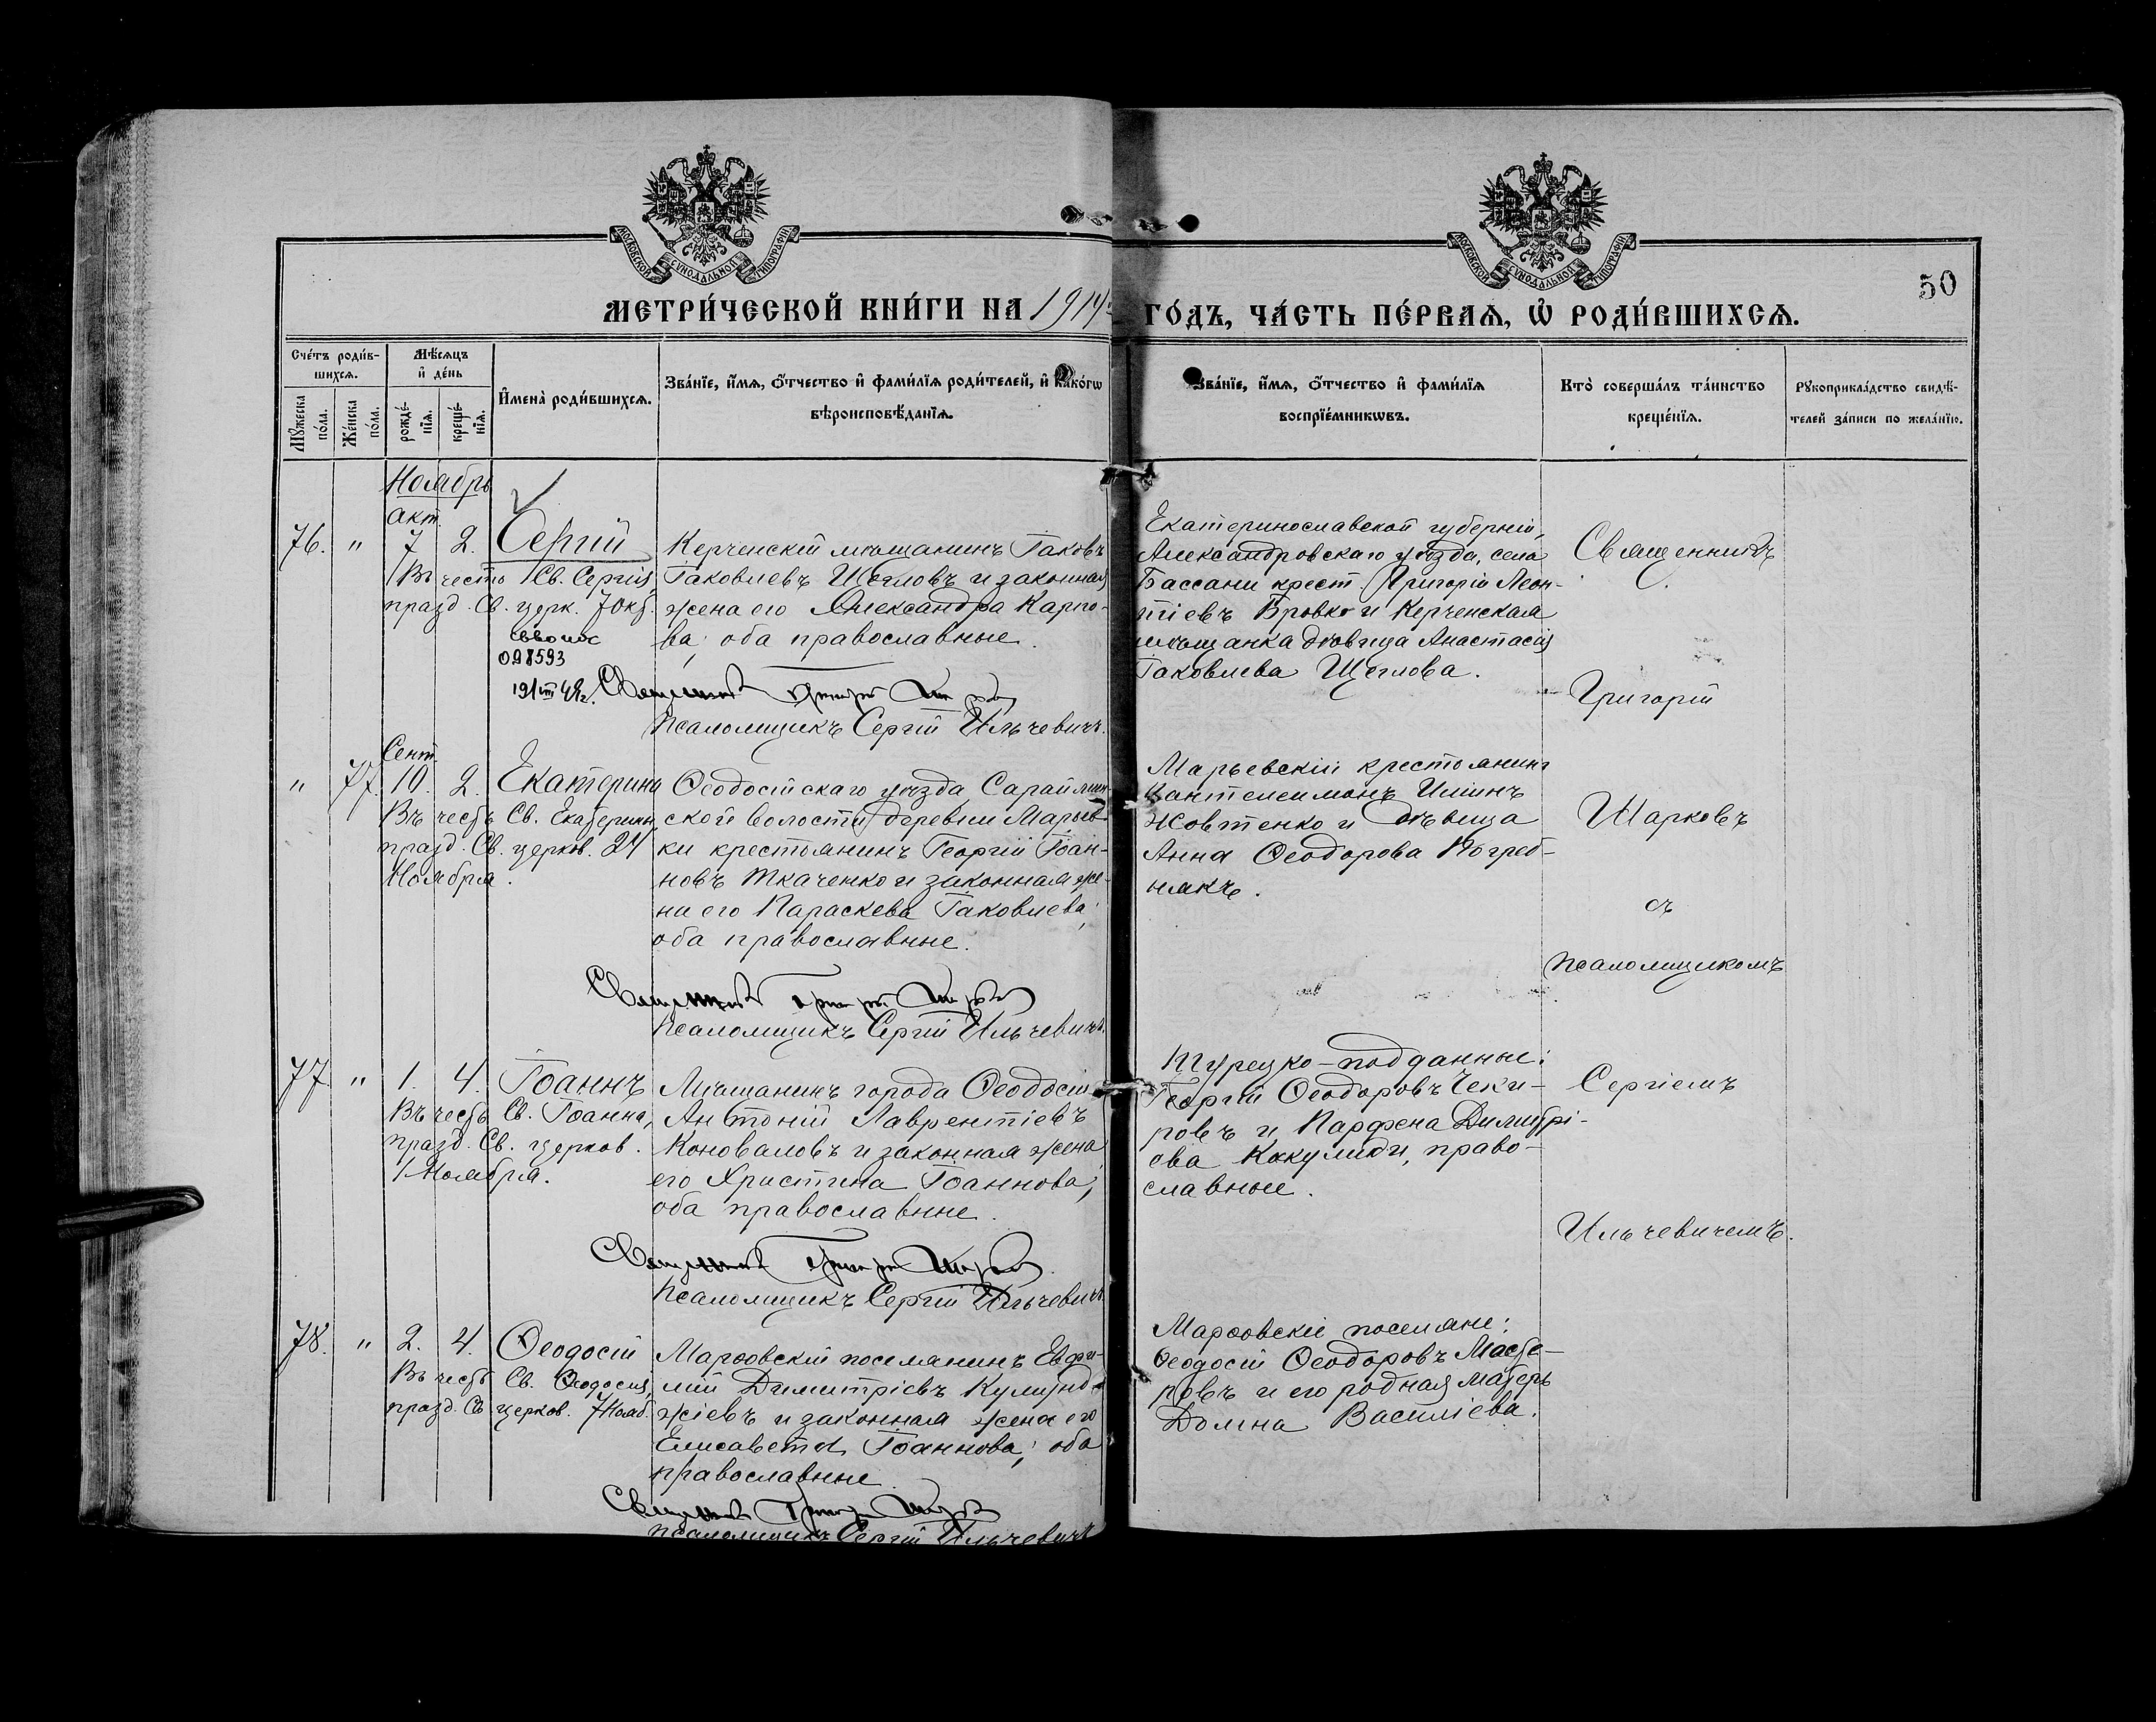 МОСКОВСКОЙ СѴНОДАЛЬНОЙ ТИПОГРАФІИ
МОСКОВСКОЙ СѴНОДАЛЬНОЙ ТИПОГРАФІИ
50
МЕТРИ́ЧЕСКОЙ КНИ́ГИ НА 1914й ГО́ДЪ, ЧА́СТЬ ПЕ́РВАЯ, Ѡ҆ РОДИ́ВШИХСЯ.
Сче́тъ роди́в-
шихся.
Мѣ́сяцъ
и҆ де́нь
Мꙋ́жеска
по́ла.
Же́нска
по́ла.
рожде́-
нїя.
креще́-
нїя.
И҆мена̀ роди́вшихся.
Зва́нїе, и҆́мя, ѻ҆́тчество и҆ фами́лїя роди́телей, и҆ како́гѡ
вѣроисповѣ́данїя.
Зва́нїе, и҆́мя, ѻ҆́тчество и҆ фами́лїя
воспрїе́мникѡвъ.
Кто̀ соверша́лъ та́инство
креще́нїя.
Рꙋкоприкла́дство свидѣ́-
телей за́писи по жела́нїю.
Ноябрь
окт.
76. " 7 2. Сергій
Въ честь Св. Сергія,
празд. Св. церк. 7 Окт.
098593
Керченскій мѣщанинъ Іаковъ
Іаковлевъ Щегловъ и законная
жена его Александра Карпо-
ва; оба православные.
Священникъ Григорій Шарковъ
Псаломщикъ Сергій Ильчевичъ.
Екатеринославской губерніи,
Александровскаго уѣзда, села
Бассани крест. Григорій Леон-
тіевъ Бровко и Керченская
мѣщанка дѣвица Анастасія
Іаковлева Щеглова.
Священникъ
Григорій
Сент.
" 77. 10. 2. Екатерина
Въ честь Св. Екатерины,
празд. Св. церков. 24
Ноября.
Ѳеодосійскаго уѣзда Сараймин-
ской волости деревни Марьев-
ки крестьянинъ Георгій Іоан-
новъ Ткаченко и законная же-
на его Параскева Іаковлева;
оба православные.
Священникъ Григорій Шарковъ
Псаломщикъ Сергій Ильчевичъ.
Марьевскій крестьянинъ
Пантелеимонъ Ильинъ
Жовтенко и дѣвица
Анна Ѳеодорова Погреб-
някъ.
Шарковъ
съ
псаломщикомъ
77 " 1. 4. Іоаннъ
Въ честь Св. Іоанна,
празд. Св. церков.
1 Ноября.
Мѣщанинъ города Ѳеодосіи
Антоній Лаврентіевъ
Коноваловъ и законная жена
его Христина Іоаннова;
оба православные.
Священникъ Григорій Шарковъ
Псаломщикъ Сергій Ильчевичъ.
Турецко-подданные:
Георгій Ѳеодоровъ Чеки-
ровъ и Парѳена Димитрі-
ева Какулиди, право-
славные.
Сергіемъ
Ильчевичемъ.
78. " 2. 4. Ѳеодосій
Въ честь Св. Ѳеодосія,
празд. Св. церков. 7 Нояб.
Марѳовскій поселянинъ Евфи-
мій Димитріевъ Кулунд-
жіевъ и законная жена его
Елисавета Іоаннова; оба
православные.
Священникъ Григорій Шарковъ
Псаломщикъ Сергій Ильчевичъ
Марѳовскіе поселяне:
Ѳеодосій Ѳеодоровъ Масте-
ровъ и его родная матерь
Домна Василіева.